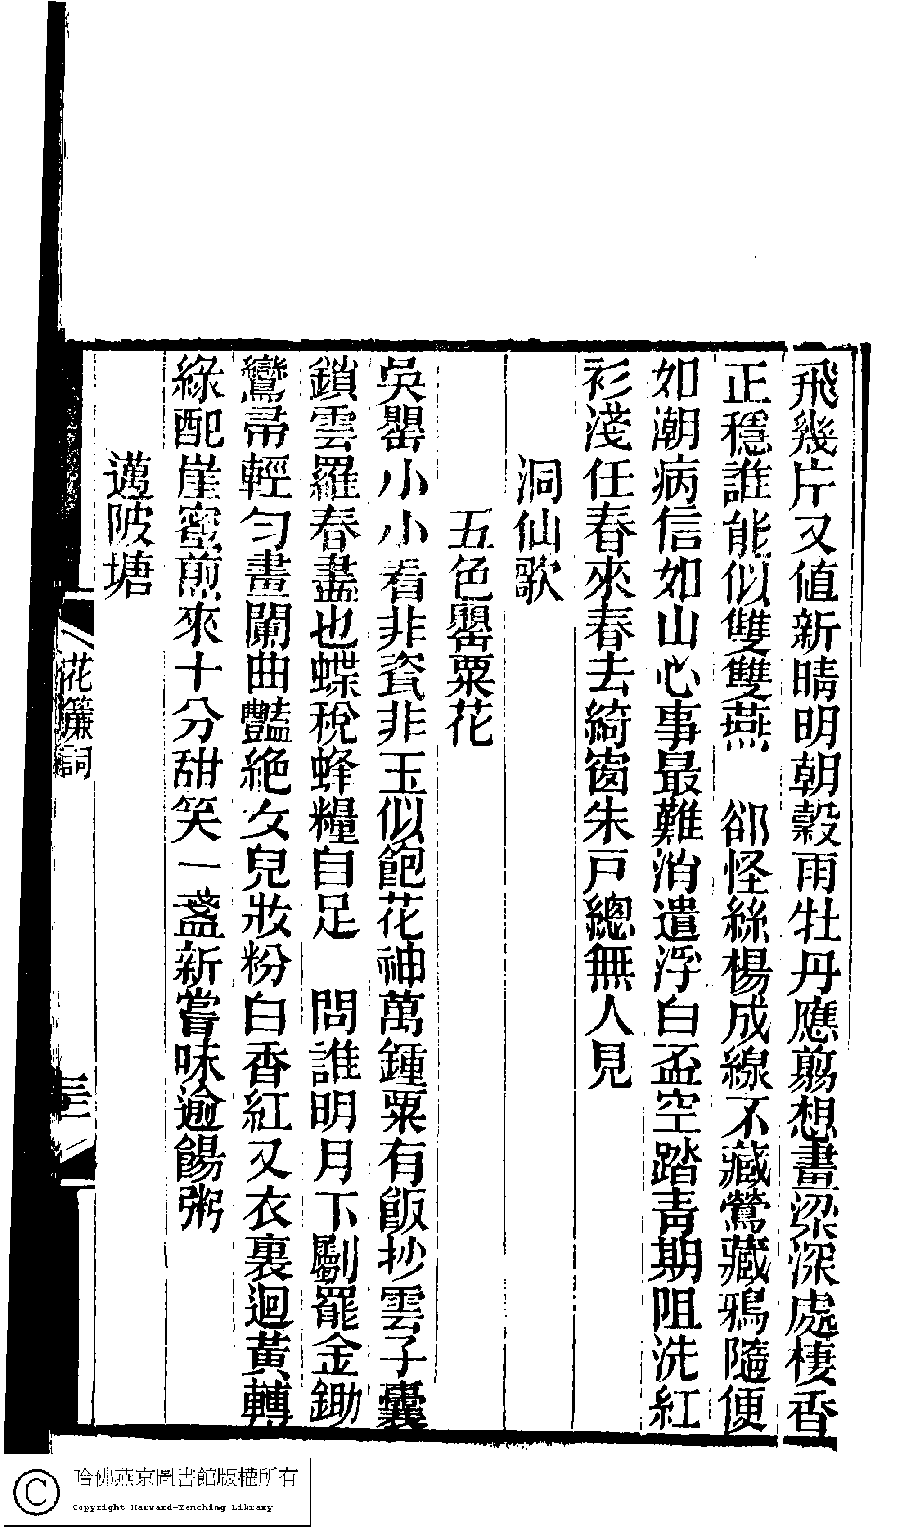 飛幾片又值新晴明朝穀雨牡丹應翦想畫梁深處棲香
正穩誰能似雙雙燕　郤怪絲楊成線不藏鶯藏鴉隨便
如潮病信如山心事最難消遣浮白盃空踏青期阻洗紅
衫淺任春來春去綺窗朱戸總無人見
洞仙歌
五色罌粟花
吳罌小小看非瓷非玉似飽花神萬鍾粟有飯抄雲子囊
鎖雲羅春盡也蝶稅蜂糧自足　問誰明月下劚罷金鋤
鸞帚輕勻畫闌曲豔絕女兒妝粉白香紅又衣裏迴黃轉
綠配崖蜜煎來十分甜笑一盞新嘗味逾餳粥
邁陂塘
花簾詞
三
哈佛燕京圖書館版權所有
Copyright Harvard-Yenching Library